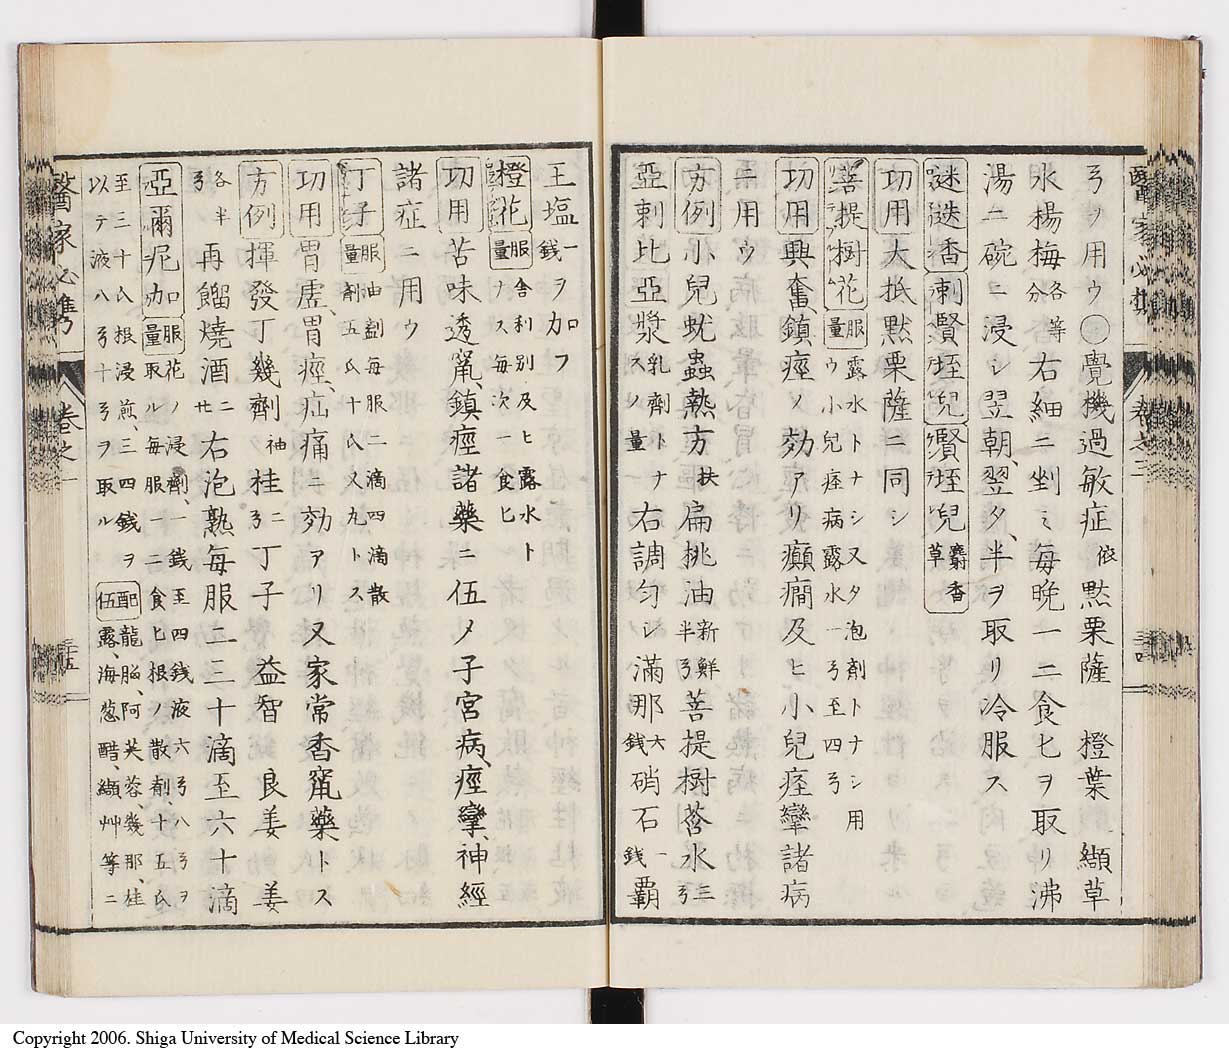 ヲ用ウ○覺機過敏症依黙栗薩 橙葉 纈草
水楊梅各等分右細ニ剉ミ每晩一二食匕ヲ取リ沸
湯二碗ニ浸シ翌朝、翌夕、半ヲ取リ冷服ス
謎迭香 刺賢垤兒 賢垤兒麝香草
功用大抵黙栗薩ニ同シ
菩提樹花 服量露水トナシ又タ泡劑トナシ用ウ小兒痓病露水一弓至四弓
功用興奮、鎮痙ノ効アリ癲癇及ヒ小兒痓攣諸病
ニ用ウ
方例小兒蚘蟲熱方扶扁挑油新鮮半弓菩提樹荅水三弓
亞剌比亞漿乳劑トナスノ量右調勻シ滿那六錢硝石一錢覇
王塩一錢ヲ加フ
橙花 服量舎利別及ヒ露水トナス每次一食匕
功用苦味透竄、鎮痙諸藥ニ伍メ子宮病、痙攣、神經
諸症ニ用ウ
丁子 服量油劑每服二滴四滴散劑五氏十氏又九トス
功用胃虛、胃痙、疝痛ニ効アリ又家常香竄藥トス
方例揮發丁幾劑袖桂二弓丁子 益智 良姜 姜
各半弓再餾燒酒二廿右泡熟每服二三十滴至六十滴
亞爾尼加 服量花ノ浸劑、一錢至四錢液六弓八弓ヲ取ル每服一二食匕根ノ散劑、十五氏
至三十氏根浸煎、三四錢ヲ以テ液八弓十弓ヲ取ル 配伍龍腦、阿芙蓉、幾那、桂露、海葱醋、纈艸等ニ
醫家必携
卷之三
三十四
醫家必携
卷之一
三十五
Copyright 2006. Shiga University of Medical Science Library